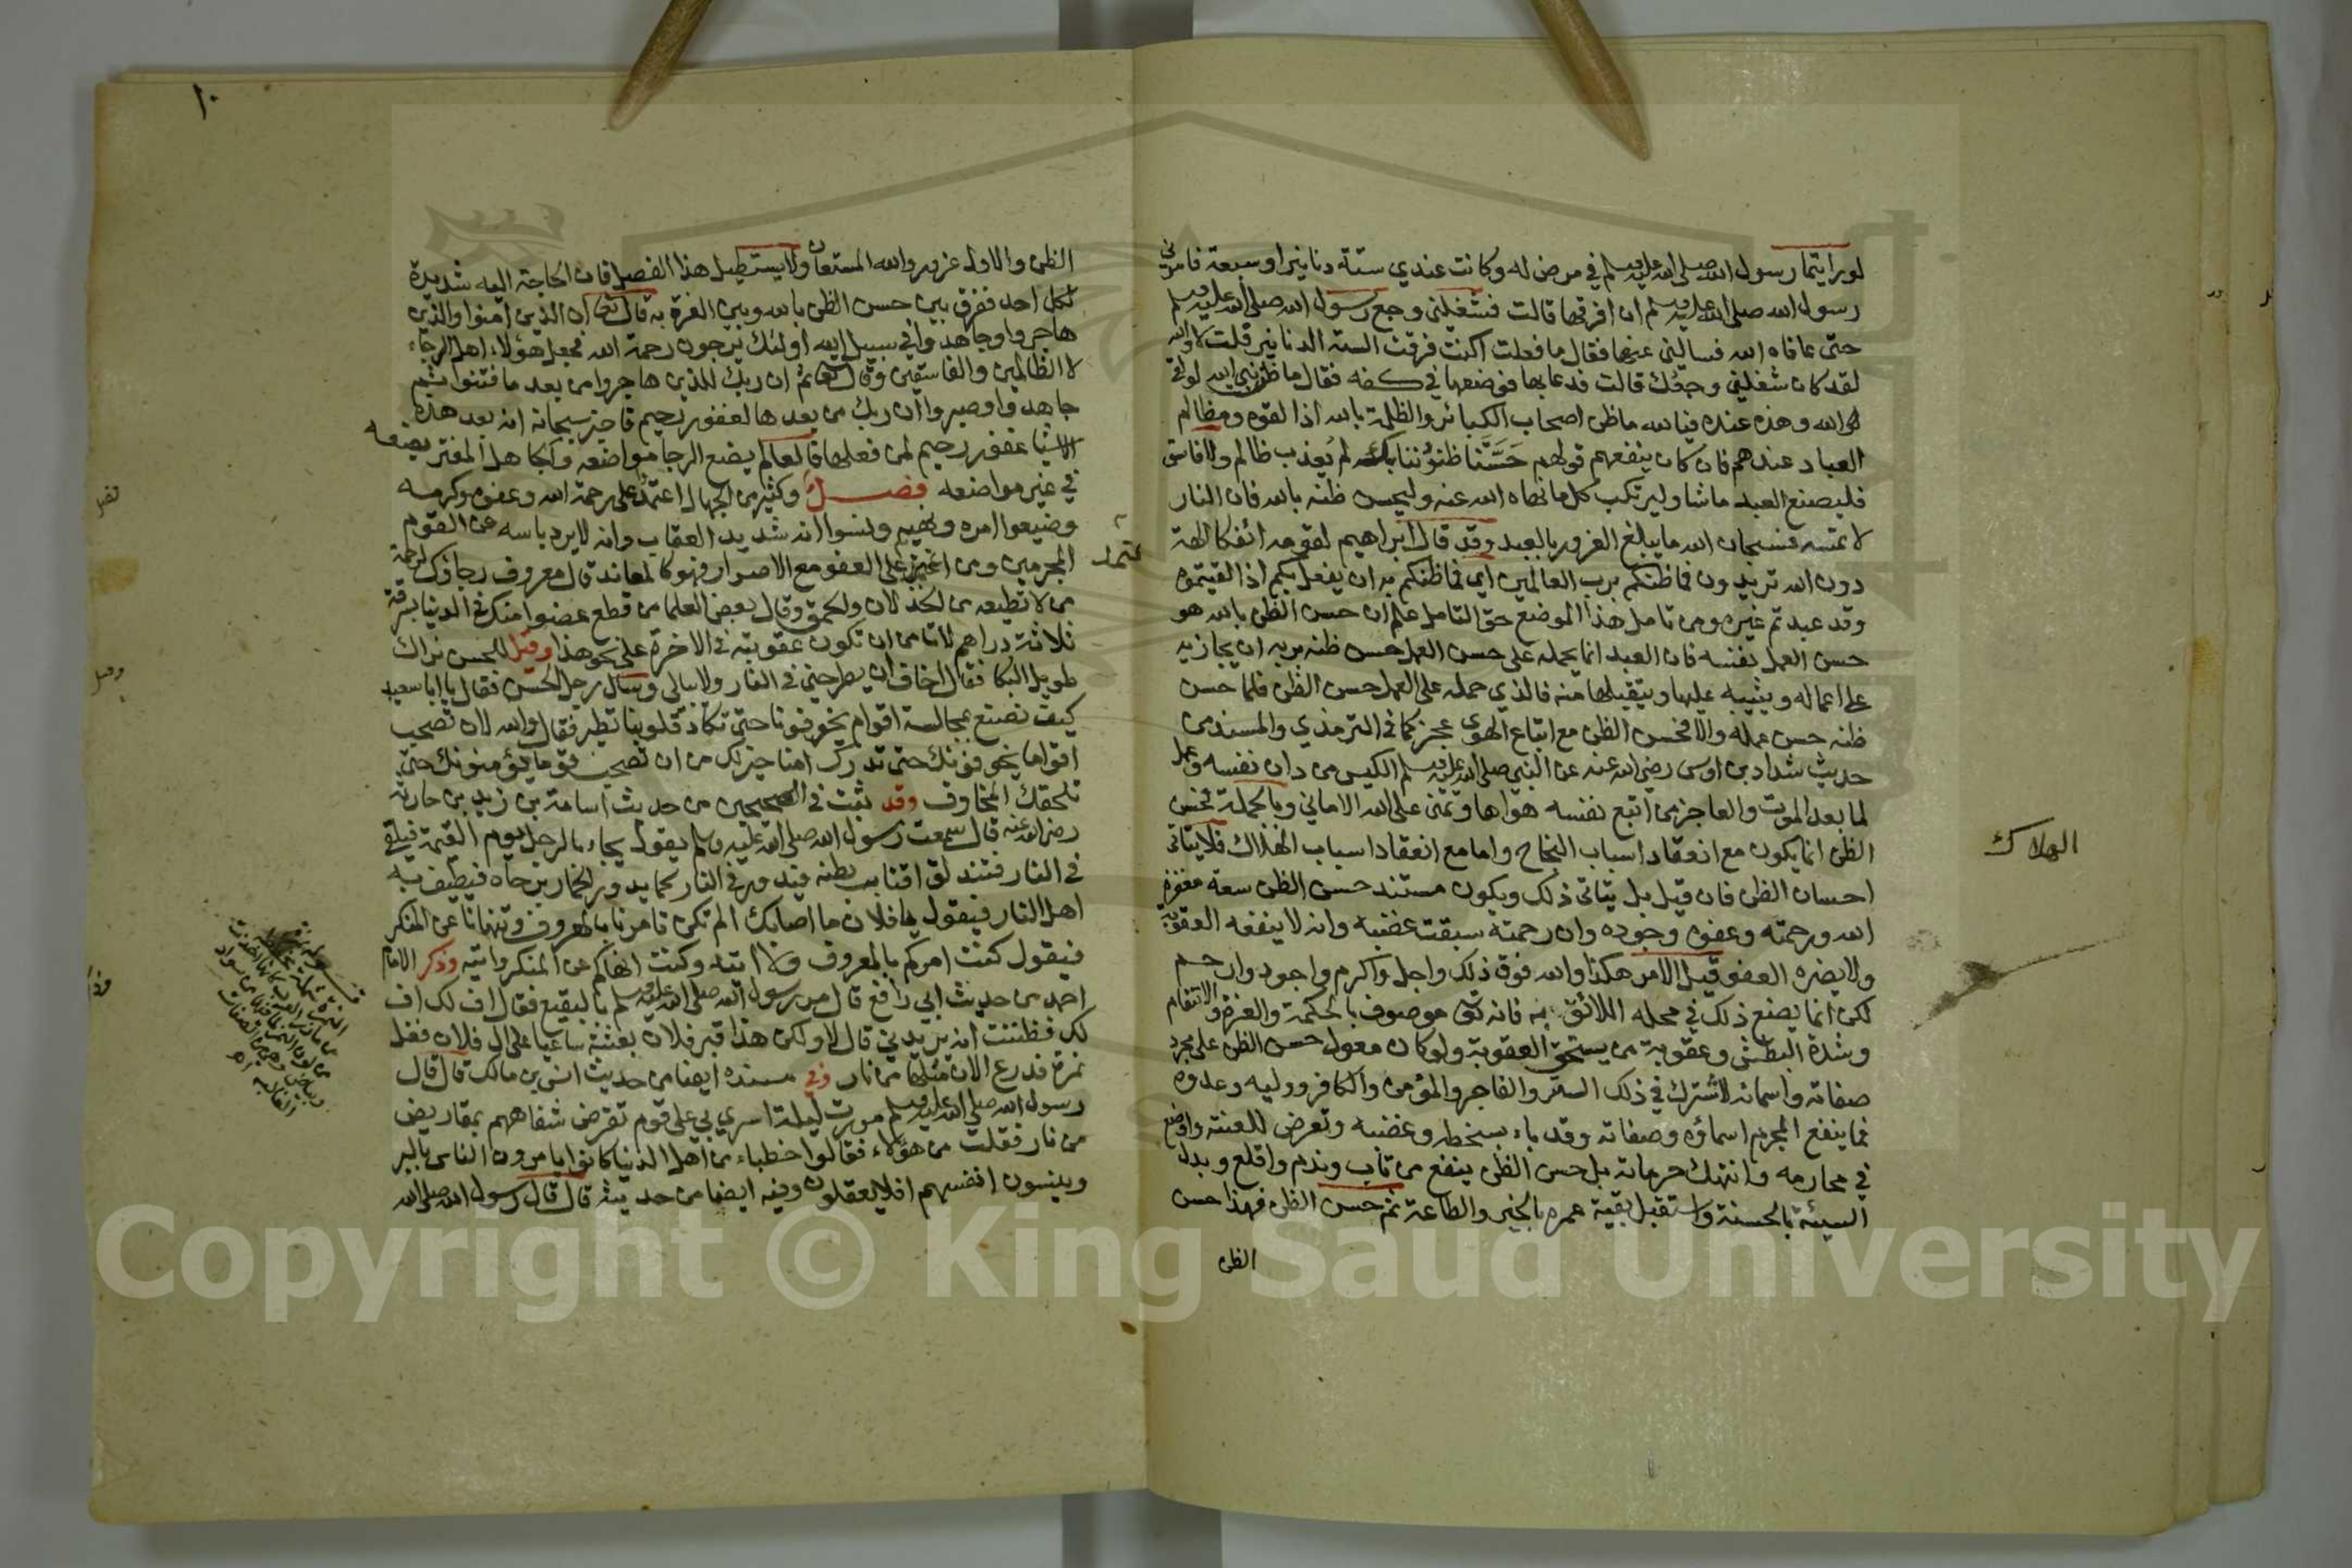 لو رايتما رسول الله صلى الله عليه وسلم في مرض له وكانت عندي ستة دنانير او سبعة فامرني
رسول الله صلى الله عليه وسلم ان افرقها قالت فشغلني وجع رسول الله صلى الله عليه وسلم
حتى عافاه الله فسالني عنها فقال ما فعلت اكنت فرقت الستة الدنانير قلت لا والله
لقد كان شغلني وجعك قالت فدعا بها فوضعها في كفه فقال ما ظن نبي الله لو لقي
الله وهذه عنده فيالله ما ظن اصحاب الكبائر والظلمة بالله اذا لقوه ومظالم
العباد عندهم فان كان ينفعهم قولهم حسنا ظنوننا بك لم يعذب ظالم ولا فاسق
فليصنع العبد ما شا وليرتكب كل ما نهاه الله عنه وليحسن ظنه بالله فان النار
لا تمسه فسبحان الله ما يبلغ الغرور بالعبد وقد قال ابراهيم لقومه ائفكا الهة
دون الله تريدون فما ظنكم برب العالمين اي فما ظنكم به ان يفعل بكم اذا لقيتموه
وقد عبدتم غيره ومن تامل هذا الموضع حق التامل علم ان حسن الظن بالله هو
حسن العمل نفسه فان العبد انما يحمله على حسن العمل حسن ظنه بربه ان يجازيه
على اعماله ويثيبه عليها ويتقبلها منه فالذي حمله على العمل حسن الظن فلما حسن
ظنه حسن عمله والا فحسن الظن مع اتباع الهوى عجز كما في الترمذي والمسند من
حديث شداد بن اوس رضي الله عنه عن النبي صلى الله عليه وسلم الكيس من دان نفسه وعمل
لما بعد الموت والعاجز من اتبع نفسه هواها وتمنى على الله الاماني وبالجملة فحسن
الظن انما يكون مع انعقاد اسباب النجاح واما مع انعقاد اسباب الهلاك فلا يتاتى
الهلاك
احسان الظن فان قيل بل يتاتى ذلك ويكون مستند حسن الظن سعة مغفرة
الله ورحمته وعفوه وجوده وان رحمته سبقت غضبه وانه لا ينفعه العقوبة
ولا يضره العفو قيل الامر هكذا والله فوق ذلك واجل واكرم واجود وارحم
لكن انما يضع ذلك في محله اللائق به فانه تعالى موصوف بالحكمة والعزة والانتقام
وشدة البطش وعقوبة من يستحق العقوبة ولو كان معول حسن الظن على مجرد
صفاته واسمائه لاشترك في ذلك البر والفاجر والمؤمن والكافر ووليه وعدوه
فما ينفع المجرم اسماؤه وصفاته وقد باء بسخطه وغضبه وتعرض للعنته واوضع
في محارمه وانتهك حرماته بل حسن الظن ينفع من تاب وندم واقلع وبدل
السيئة بالحسنة واستقبل بقية عمره بالخير والطاعة ثم حسن الظن فهذا حسن
الظن
١٠
الظن والاول غرور والله المستعان ولا يستطيل هذا الفصل فان الحاجة اليه شديدة
لكل احد ففرق بين حسن الظن بالله وبين الغرة به قال تعالى ان الذين امنوا والذين
هاجروا وجاهدوا في سبيل الله اولئك يرجون رحمة الله فجعل هؤلاء اهل الرجاء
لا الظالمين والفاسقين وقال تعالى ثم ان ربك للذين هاجروا من بعد ما فتنوا ثم
جاهدوا وصبروا ان ربك من بعدها لغفور رحيم فاخبر سبحانه انه بعد هذه
الاشيا غفور رحيم لمن فعلها فالعالم يضع الرجا مواضعه والجاهل المغتر يضعه
في غير مواضعه فصل وكثير من الجهال اعتمد على رحمة الله وعفوه وكرمه
وضيعوا امره ونهيه ونسوا انه شديد العقاب وانه لا يرد باسه عن القوم
المجرمين ومن اعتمد على العفو مع الاصرار فهو كالمعاند قال معروف رجاؤك لرحمة
عتمد
من لا تطيعه من الخذلان والحمق وقال بعض العلما من قطع عضوا منك في الدنيا بسرقة
ثلاثة دراهم لا تامن ان تكون عقوبته في الاخرة على نحو هذا وقيل للحسن نراك
طويل البكا فقال اخاف ان يطرحني في النار ولا يبالي وسال رجل الحسن فقال يا ابا سعيد
كيف نصنع بمجالسة اقوام يخوفونا حتى تكاد قلوبنا تطير فقال والله لان تصحب
اقواما يخوفونك حتى تدرك امنا خير لك من ان تصحب قوما يؤمنونك حتى
تلحقك المخاوف وقد ثبت في الصحيحين من حديث اسامة بن زيد بن حارثة
رضي الله عنه قال سمعت رسول الله صلى الله عليه وسلم يقول يجاء بالرجل يوم القيمة فيلقى
في النار فتندلق اقتاب بطنه فيدور في النار كما يدور الحمار برحاه فيطيف به
اهل النار فيقول يا فلان ما اصابك الم تكن تامرنا بالمعروف وتنهانا عن المنكر
فيقول كنت امركم بالمعروف ولا اتيه وكنت انهاكم عن المنكر واتيه وذكر الامام
احمد من حديث ابي رافع قال مر رسول الله صلى الله عليه وسلم بالبقيع فقال اف لك اف
لك فظننت انه يريدني قال لا ولكن هذا قبر فلان بعثته ساعيا على ال فلان فغل
نمرة فدرع الان مثلها من نار وفي مسنده ايضا من حديث انس بن مالك قال قال
رسول الله صلى الله عليه وسلم مررت ليلة اسري بي على قوم تقرض شفاههم بمقاريض
من نار فقلت من هؤلاء فقالوا خطباء من اهل الدنيا كانوا يامرون الناس بالبر
وينسون انفسهم افلا يعقلون وفيه ايضا من حديثه قال قال رسول الله صلى الله
Copyright © King Saud University